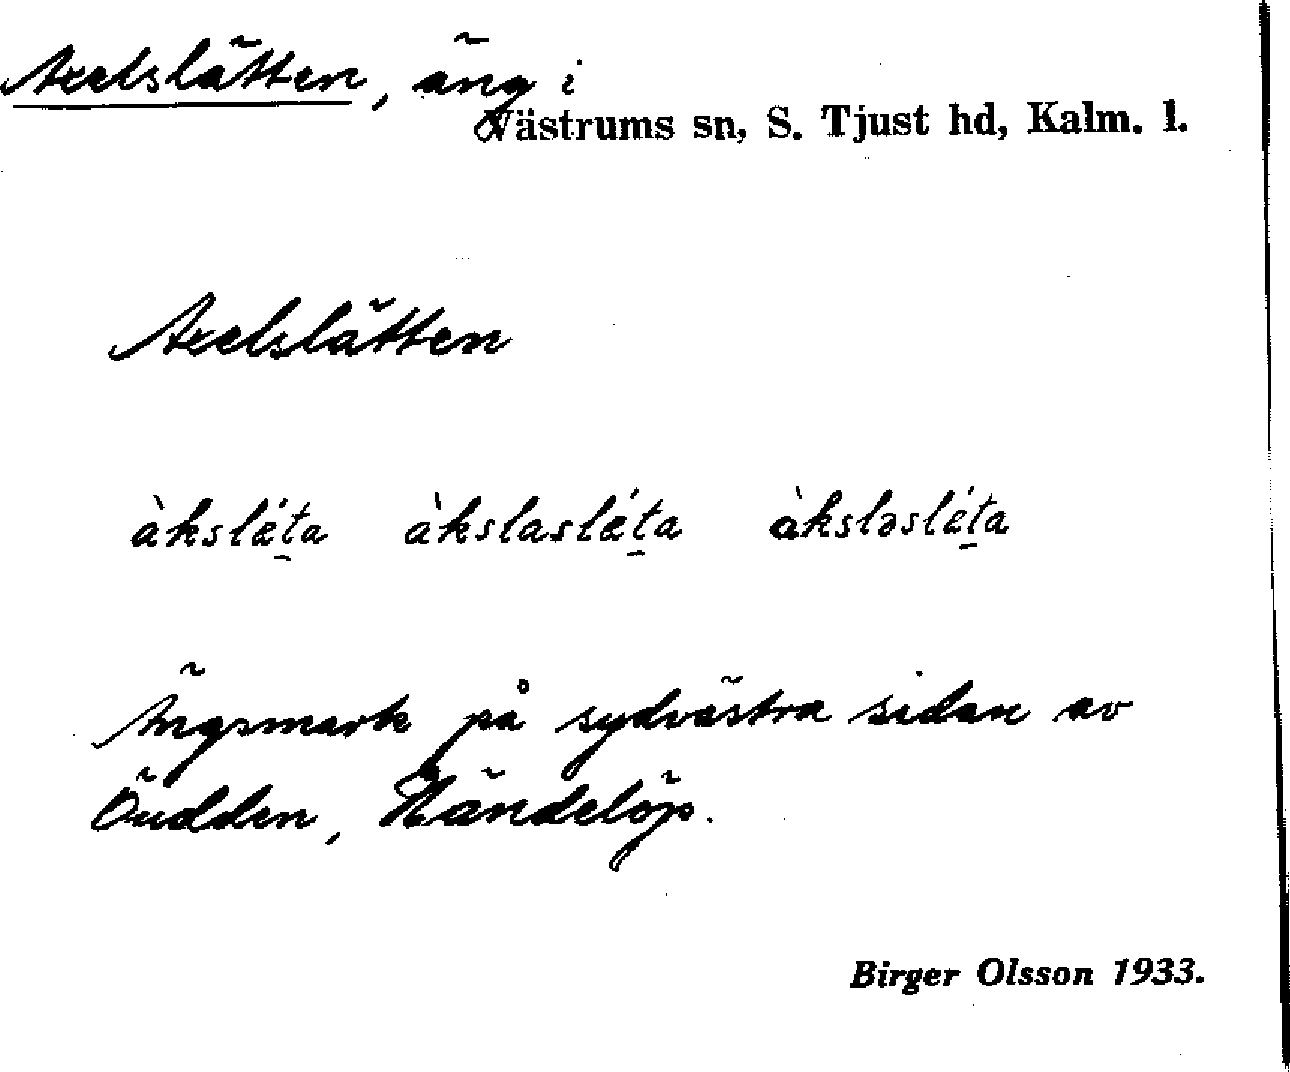 Axelslätten, äng i
Västrums sn, S. Tjust hd, Kalm. l.
Axelslätten
àkslǽt̲a àkslaslǽt̲a àksləslǽt̲a
Ängsmark på sydvästra sidan av
Öudden, Händelöp.
Birger Olsson 1933.